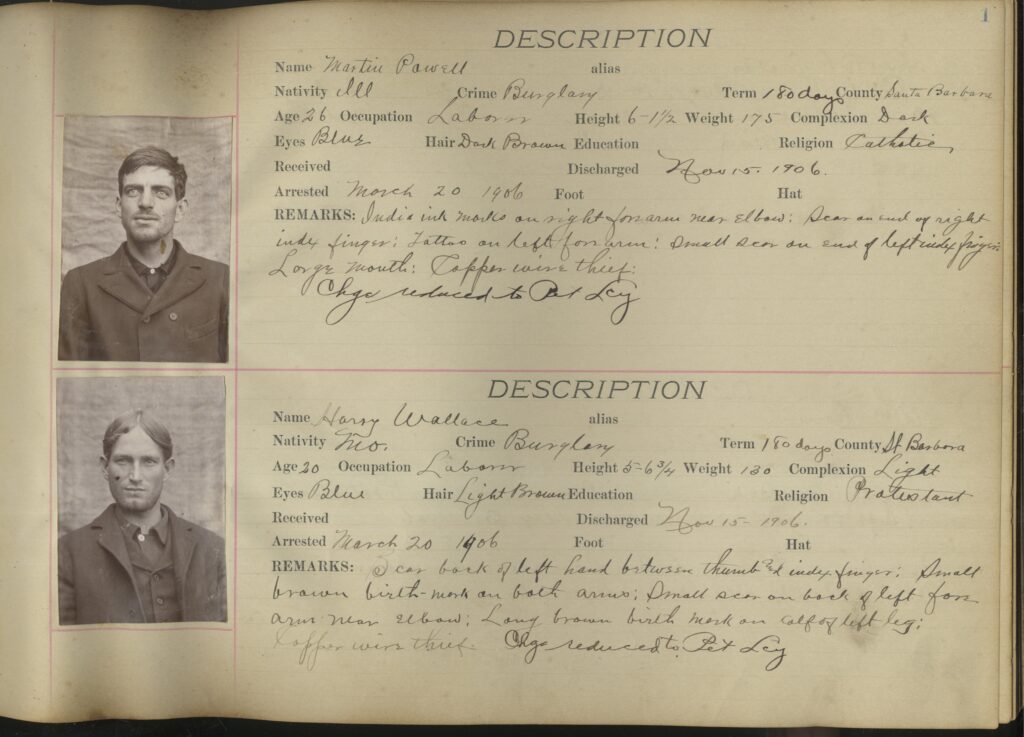 1
DESCRIPTION
Name Martin Powell alias
Nativity Ill Crime Burglary Term 180 days County Santa Barbara
Age 26 Occupation Laborer Height 6-1 1/2 Weight 175 Complexion Dark
Eyes Blue Hair Dark Brown Education Religion Catholic
Received Discharged Nov 15. 1906.
Arrested March 20 1906 Foot Hat
REMARKS: India ink marks on right forearm near elbow: Scar on end of right
index finger: Tattoo on left forearm: Small scar on end of left index finger:
Large mouth: Copper wire thief:
Chge reduced to Pet Lcy
DESCRIPTION
Name Harry Wallace alias
Nativity Mo. Crime Burglary Term 180 days County St Barbara
Age 20 Occupation Laborer Height 5-6 3/4 Weight 130 Complexion Light
Eyes Blue Hair Light Brown Education Religion Protestant
Received Discharged Nov 15-1906.
Arrested March 20 1906 Foot Hat
REMARKS: Scar back of left hand between thumb and index finger: Small
brown birth-mark on both arms: Small scar on back of left fore
arm near elbow: Long brown birth mark on calf of left leg:
Copper wire thief. Chge reduced to Pet Lcy